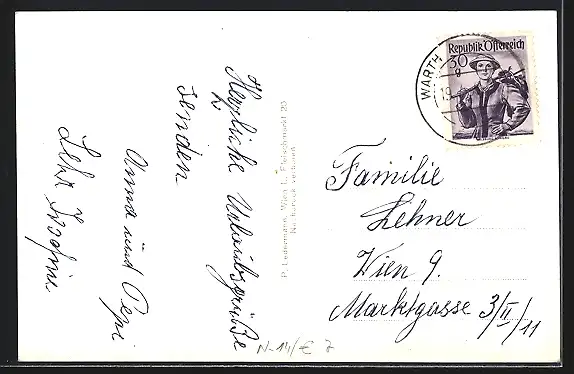 Herzliche Urlaubsgrüße
senden
Anna und Pepi
P. Ledermann, Wien I., Fleischmarkt 20
Nachdruck verboten
WARTH
Republik Österreich
30
g
Familie
Lehner
Wien 9.
Marktgasse 3/II/11
N-14/€ 7